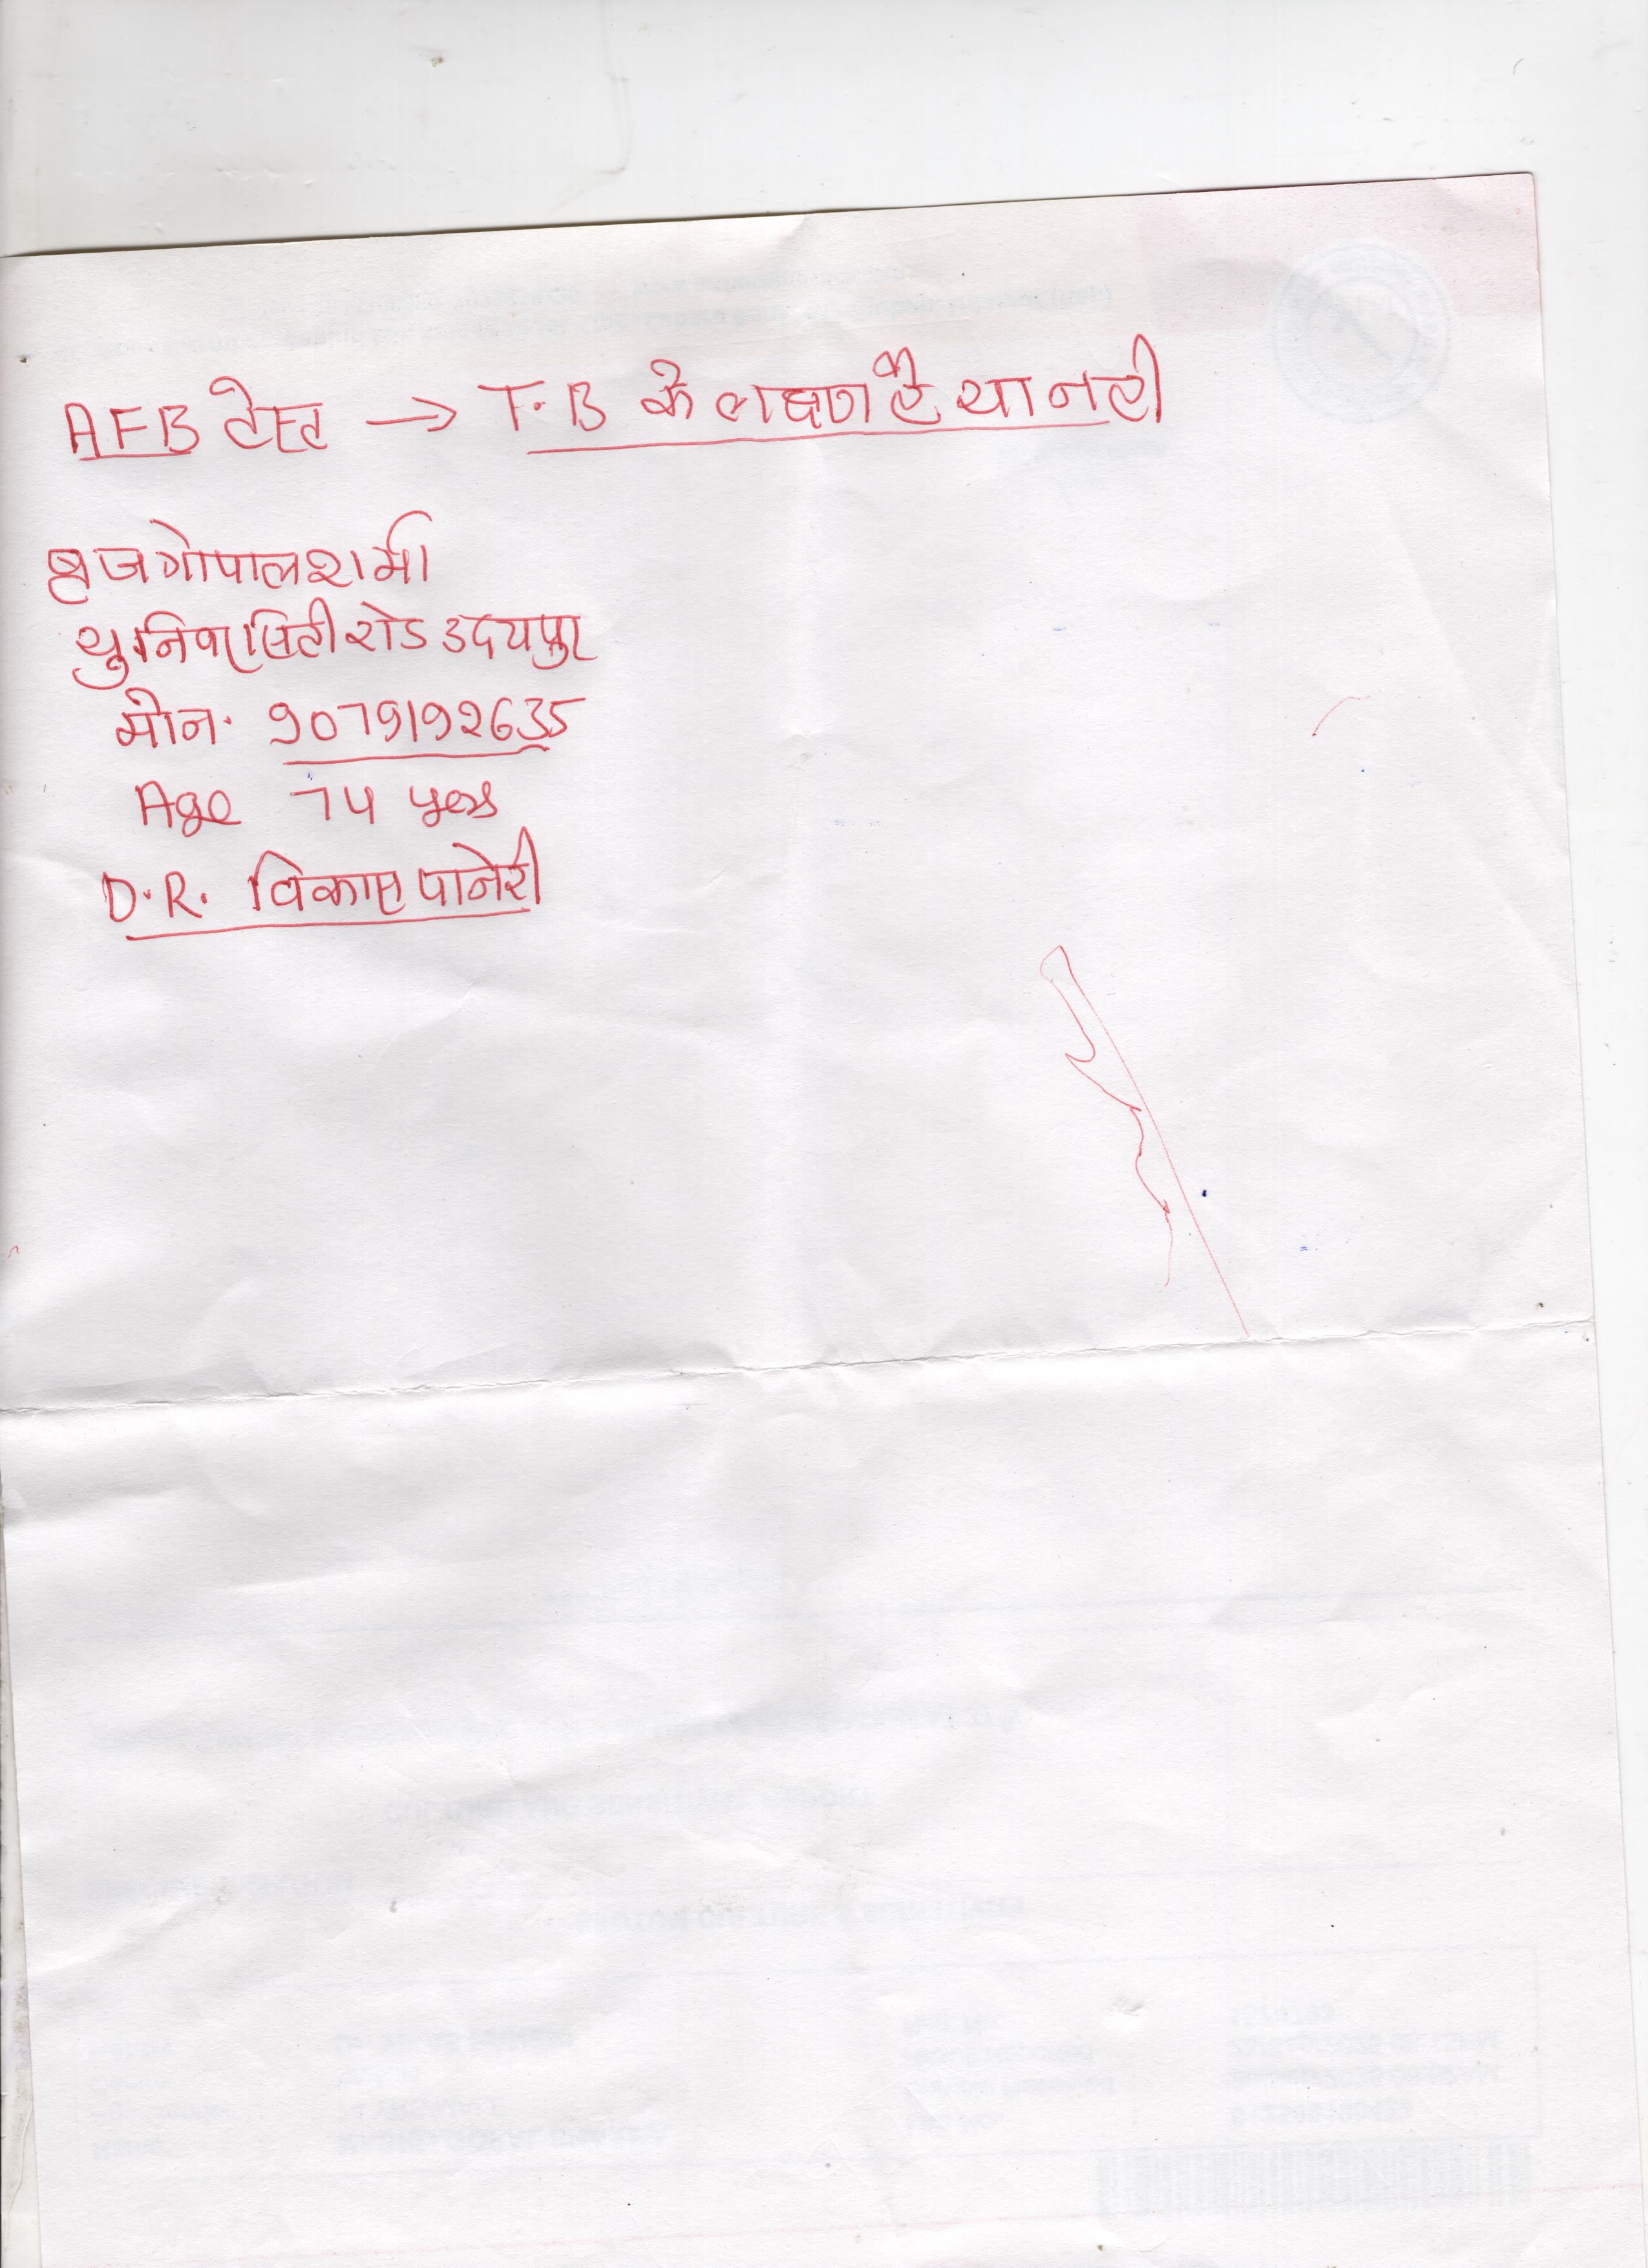 AFB टेस्ट → T.B के लक्षण है या नही
बृजगोपाल शर्मा
युनिवर्सिटी रोड उदयपुर
मोन. 9079192635
Age 74 yers
D.R. विकास पानेरी